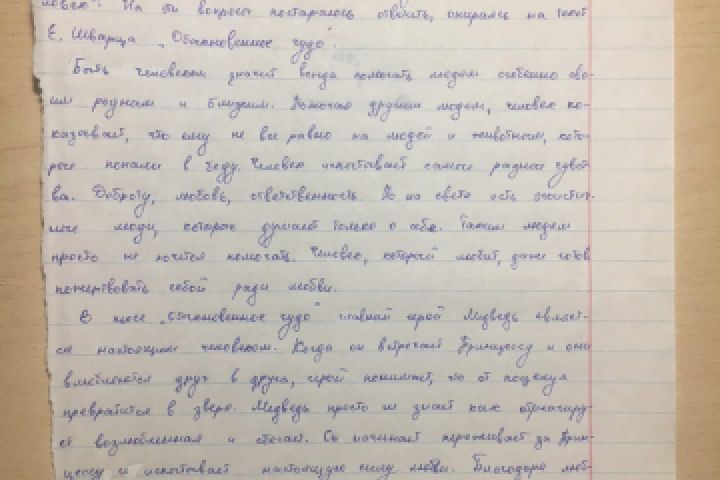 ловеком? На эти вопросы постараюсь ответить, опираясь на текст
Е. Шварца „Обыкновенное чудо".
Быть человеком значит всегда помогать людям особенно сво-
им родным и близким. Помогая другим людям, человек по-
казывает, что ему не все равно на людей и животных, кото-
рые попали в беду. Человек испытывает самые разные чувст-
ва. Доброту, любовь, ответственность. Но на свете есть эгоистич-
ные люди, которые думают только о себе. Таким людям
просто не хочется помогать. Человек, который любит, даже готов
пожертвовать собой ради любви.
В пьесе „Обыкновенное чудо" главный герой Медведь являет-
ся настоящим человеком. Когда он встречает Принцессу и они
влюбляются друг в друга, герой понимает, что от поцелуя
превратится в зверя. Медведь просто не знает как отреагиру-
ет возлюбленная и сбегает. Он начинает переживать за Прин-
цессу и испытывает настоящую силу любви. Благодаря люб-